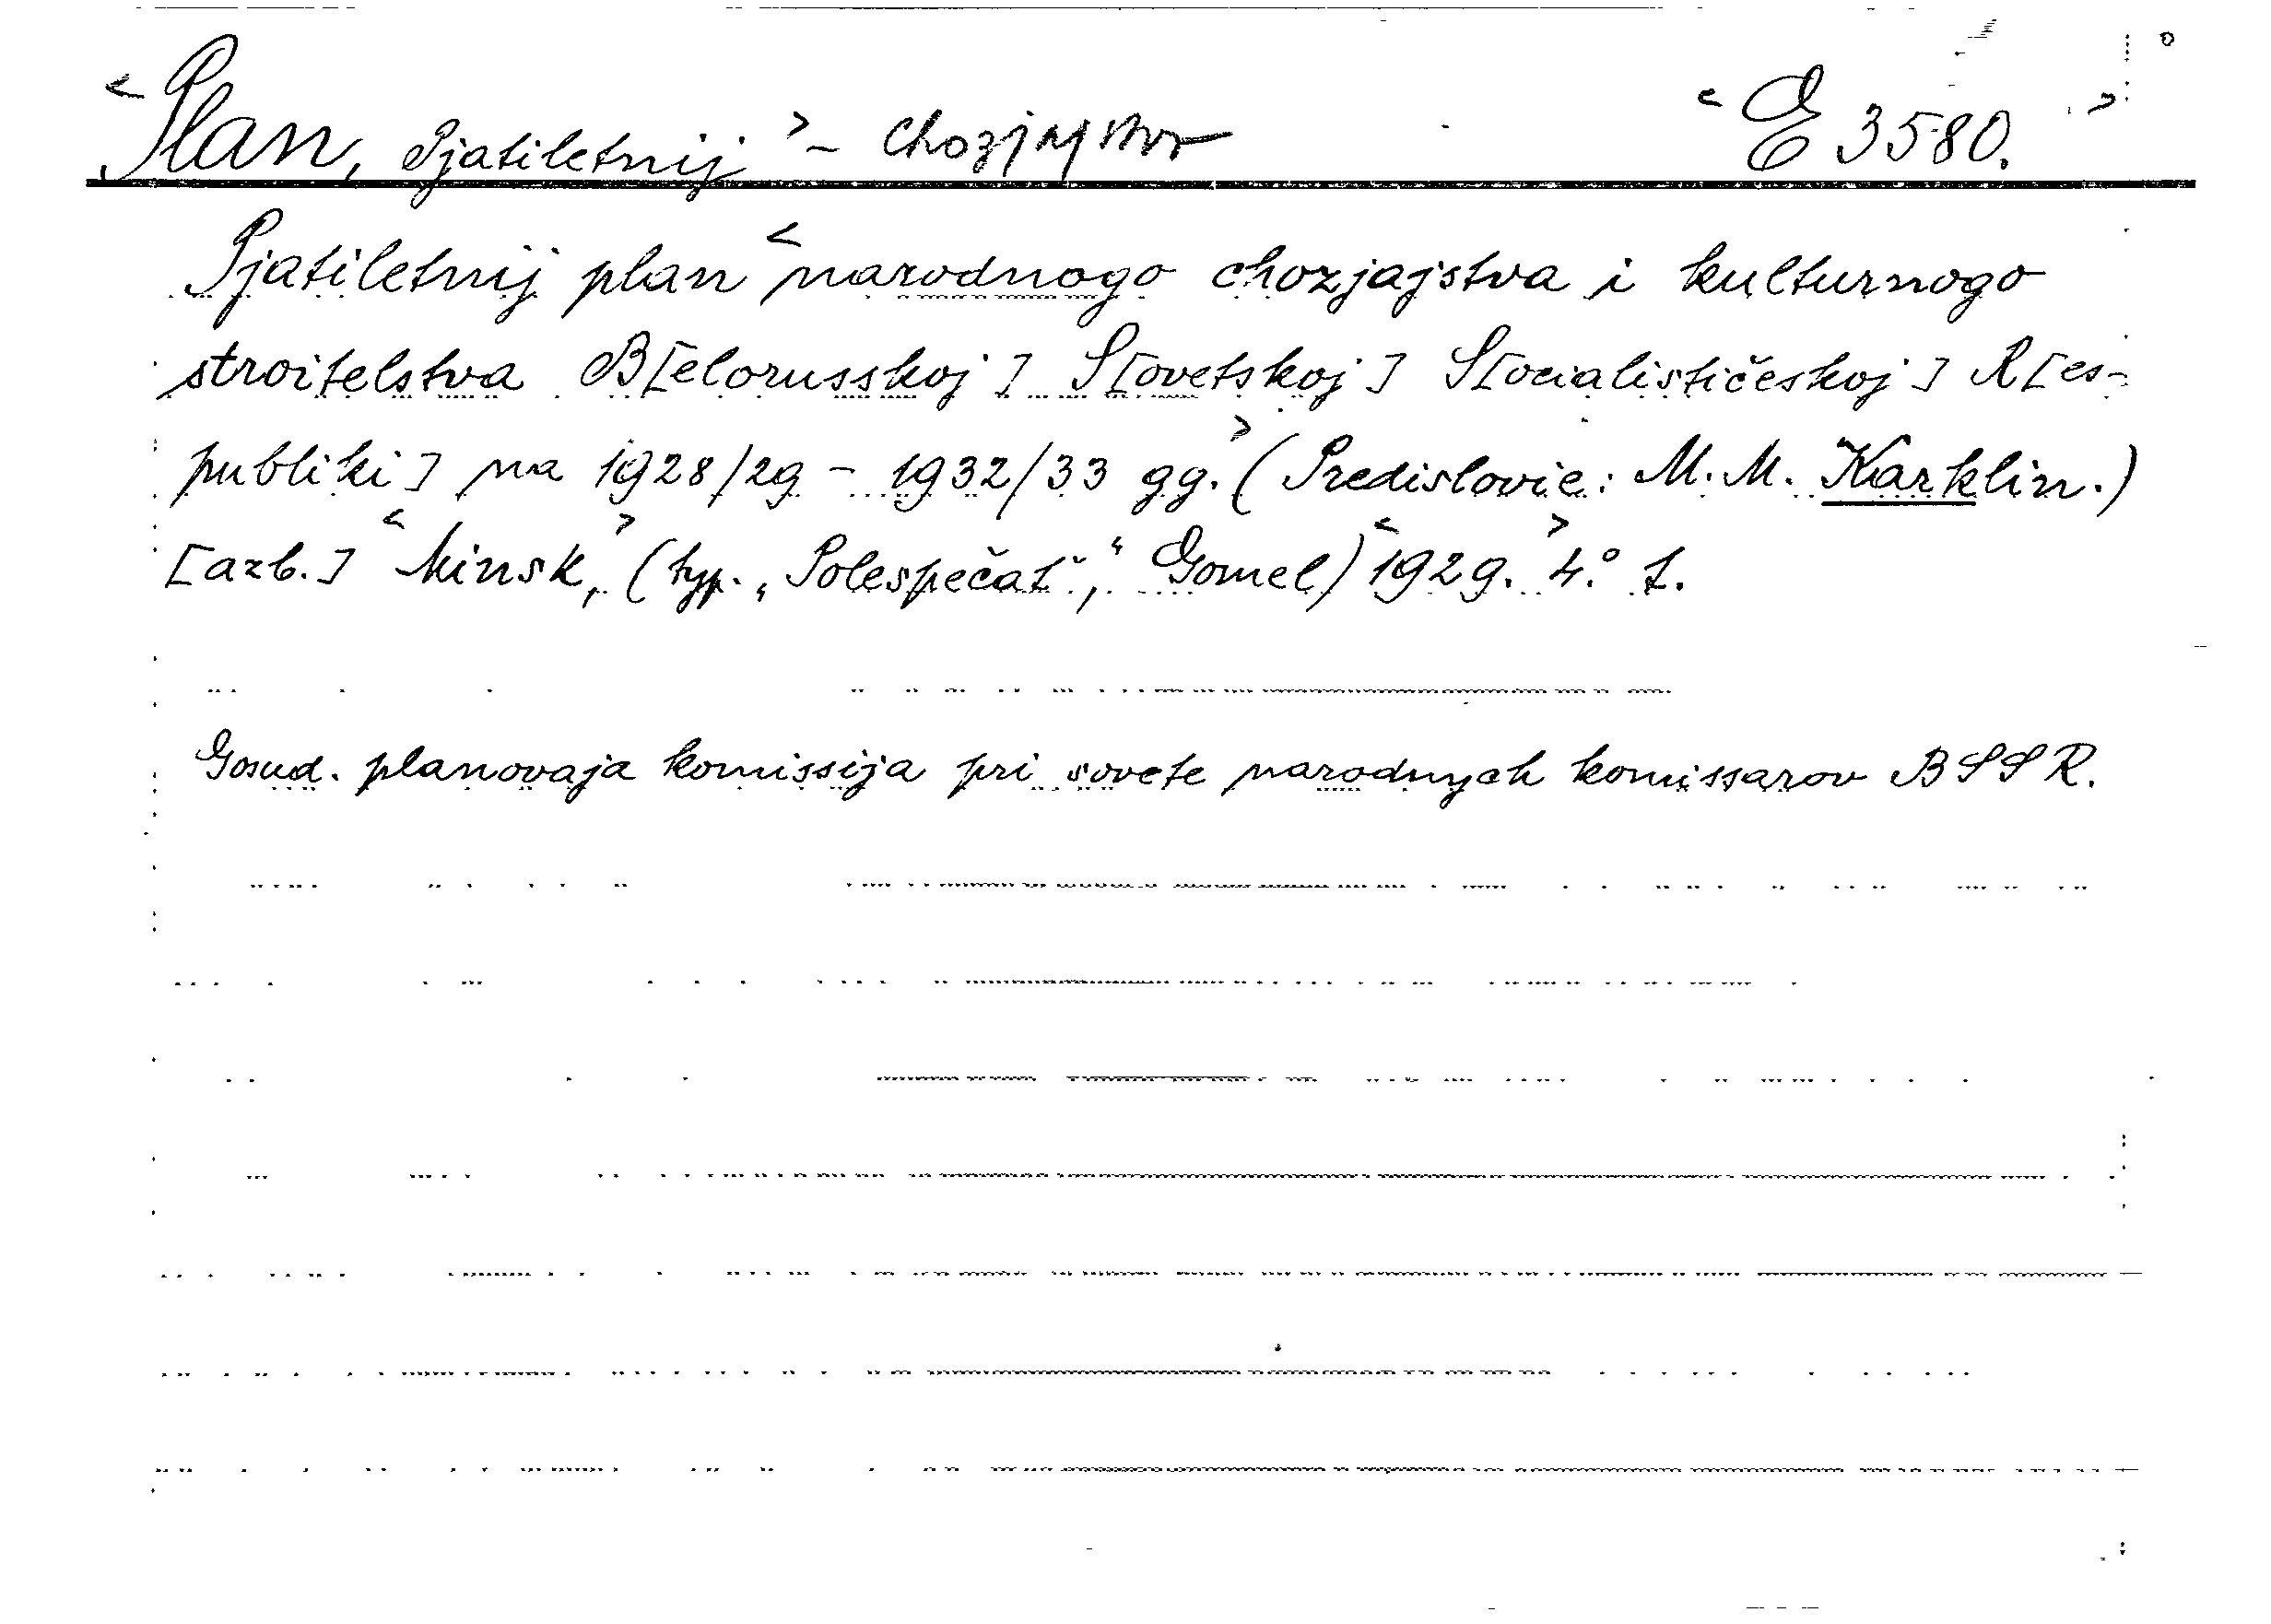 <Plan, Pjatiletnij> - chozjajstva <E 3580.>
Pjatiletnij plan <narodnogo chozjajstva i kulturnogo
stroitelstva B[elorusskoj] S[ovetskoj] S[ocialističeskoj] R[es-
publiki] na 1928/29 - 1932/33 gg.> (Predislovie: M. M. Karklin.)
[azb.] <Minsk,> (typ. „Polespečat“, Gomel) <1929.> 4.° 1.
Gosud. planovaja komissija pri sovete narodnych komissarov BSSR.